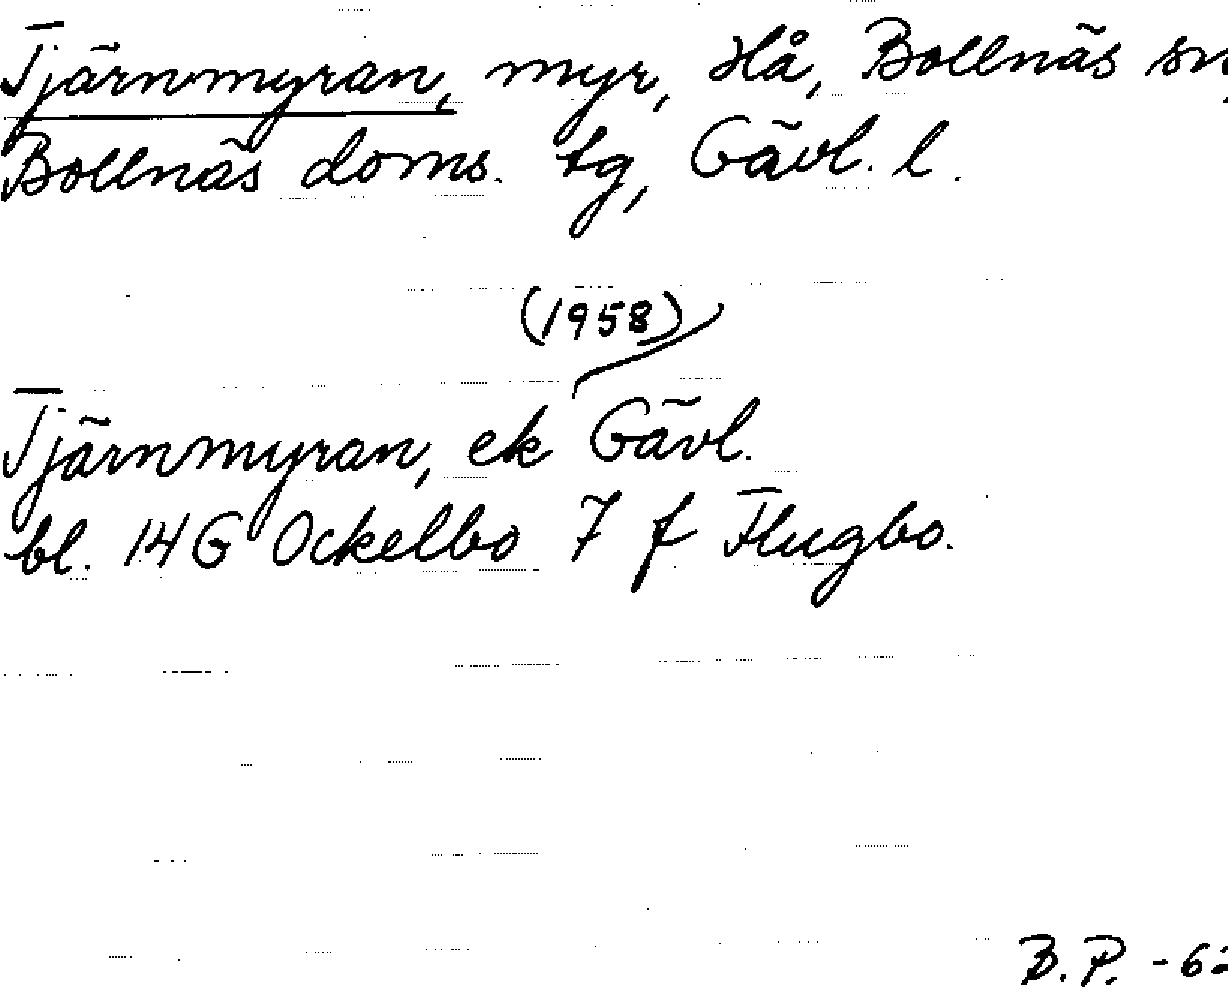 Tjärnmyran, myr, Hå, Bollnäs sn,
Bollnäs doms. tg, Gävl. l.
(1958)
Tjärnmyran, ek Gävl.
bl. 14G Ockelbo 7 f Flugbo.
B.P. -62